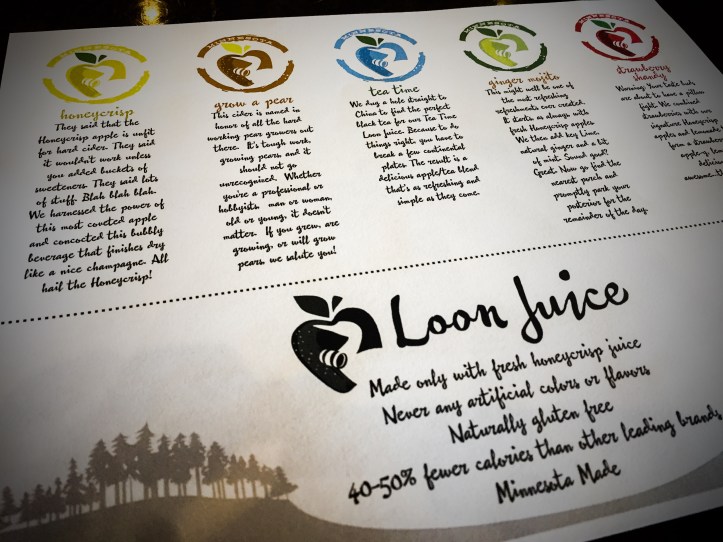 MINNESOTA
honeycrisp
They said that the
Honeycrisp apple is unfit
for hard cider. They said
it wouldn't work unless
you added buckets of
sweeteners. They said lots
of stuff. Blah blah blah.
We harnessed the power of
this most coveted apple
and concocted this bubbly
beverage that finishes dry
like a nice champagne. All
hail the Honeycrisp!
MINNESOTA
grow a pear
This cider is named in
honor of all the hard
working pear growers out
there. It's tough work,
growing pears and it
should not go
unrecognized. Whether
you're a professional or
hobbyists, man or woman,
old or young; it doesn't
matter. If you grow, are
growing, or will grow
pears, we salute you!
MINNESOTA
tea time
We dug a hole straight to
China to find the perfect
black tea for our Tea Time
Loon Juice. Because to do
things right, you have to
break a few continental
plates. The result is a
delicious apple/tea blend
that's as refreshing and
simple as they come.
MINNESOTA
ginger mojito
This might well be one of
the most refreshing
refreshments ever created.
It starts as always with
fresh Honeycrisp apples
We then add key lime,
natural ginger and a bit
of mint. Sound good?
Great. Now go find the
nearest porch and
promptly park your
posterior for the
remainder of the day.
MINNESOTA
strawberry
shandy
Warning: Your taste buds
are about to have a pillow
fight. We combined
strawberries with our
signature honeycrisp
apples and lemonade
form a strawberr
apple-y, lem
delicious
awesome
Loon Juice
Made only with fresh honeycrisp juice
Never any artificial colors or flavors
Naturally gluten free
40-50% fewer calories than other leading brands
Minnesota Made